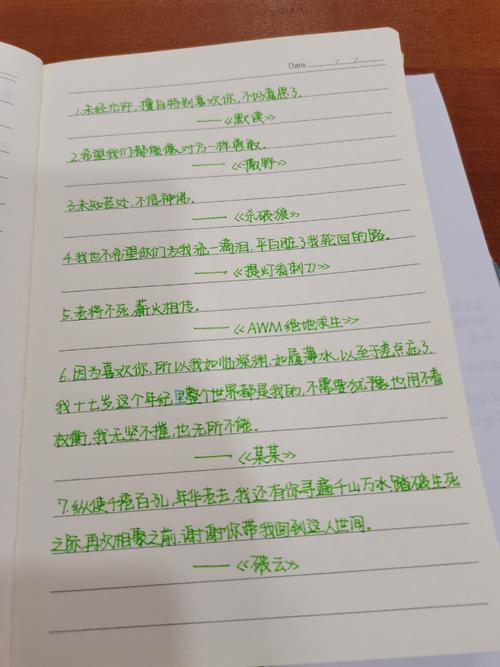 Date: / /
1.未经允许,擅自特别喜欢你,不好意思了.
——《默读》
2.希望我们都能像对方一样勇敢.
——《撒野》
3.未知苦处,不信神佛.
——《杀破狼》
4.我也不希望你们为我流一滴泪,平白脏了我轮回的路.
——《提灯看刺刀》
5.老将不死,薪火相传.
——《AWM绝地求生》
6.因为喜欢你,所以我如临深渊.如履薄冰,以至于差点忘了
我十七岁,这个年纪里整个世界都是我的,不需要犹豫,也用不着
权衡,我无坚不摧,也无所不能.
——《某某》
7.纵使千疮百孔,年华老去,我还有你寻遍千山万水,踏破生死
之际,再次相聚之前.谢谢你带我回到这人世间.
——《破云》